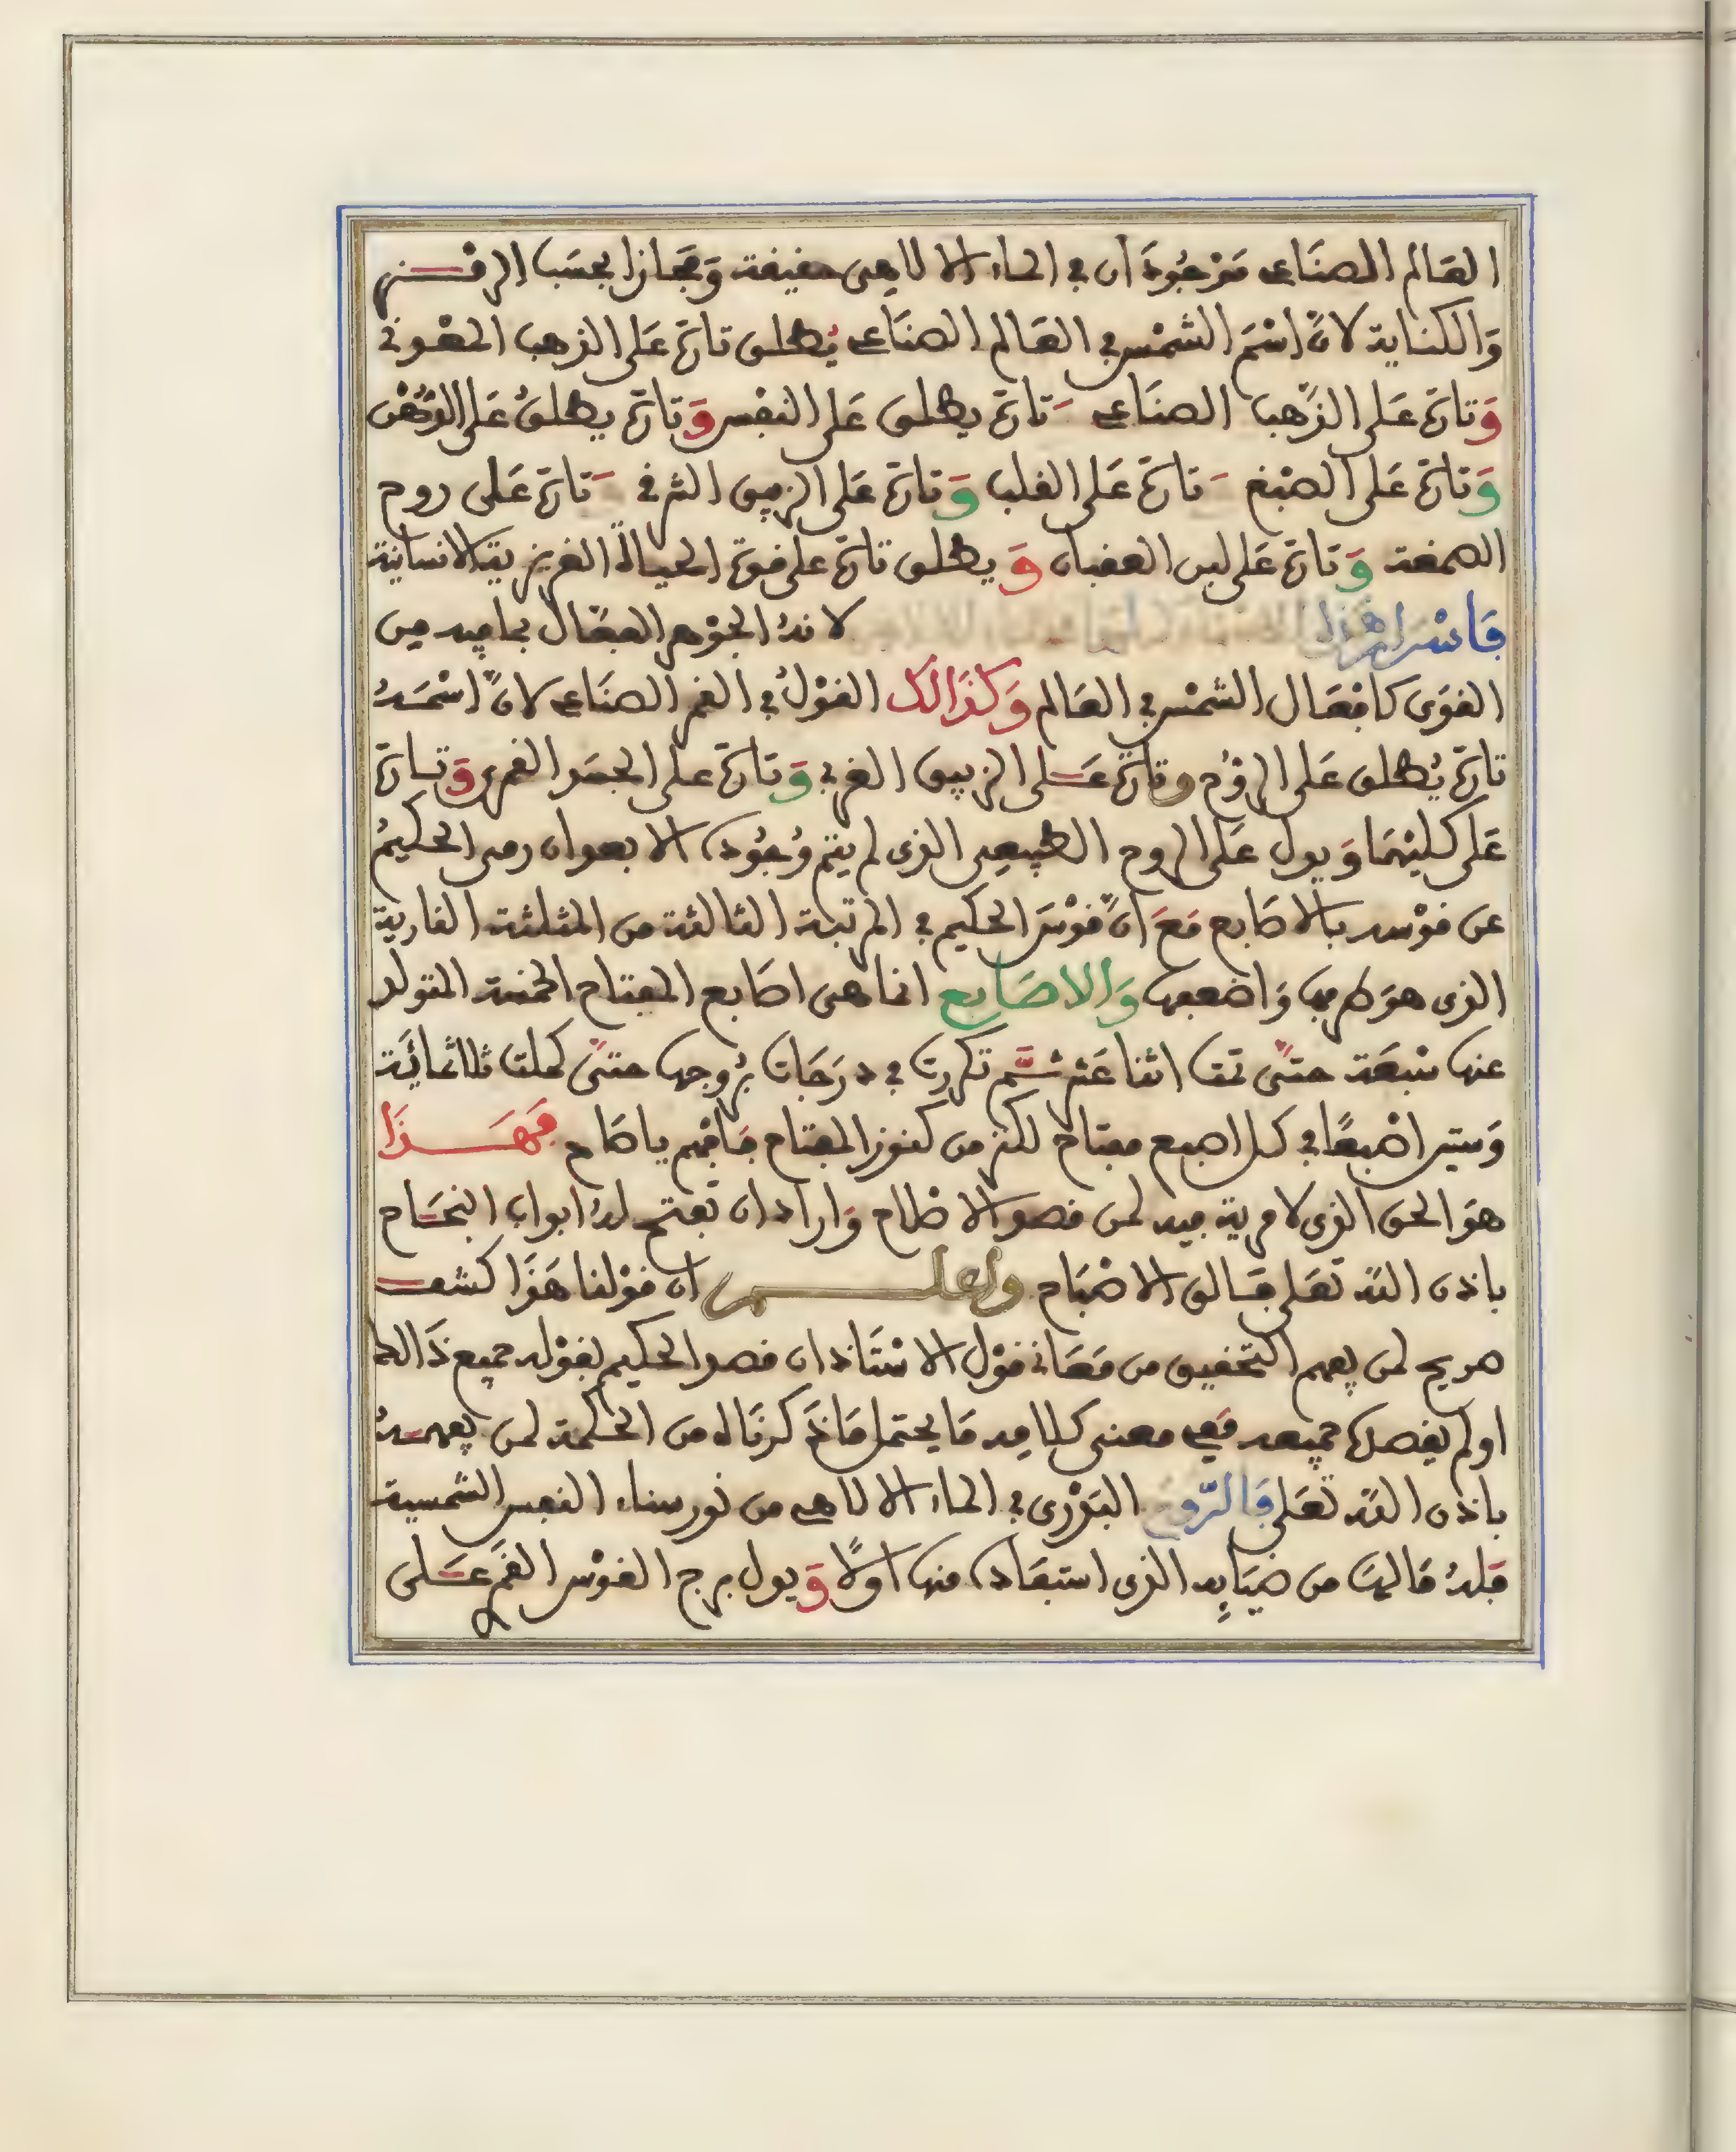 العَالم الصنَاعى مَوْجُودَان في الماء الالاهى حقيقة وَمجَازا بحسَب الرمْـز
وَالكناية لانَّ اسْمَ الشمْس في العَالم الصنَاعى يُطلق تارَة عَلى الذهب المعْدنى
وَتارَة عَلى الذَّهب الصنَاعى وَتارَة يطلق عَلى النفْس وَتارَة يطلقُ عَلى الدّهْن
وَتارَة عَلى الصبْغ وَتارَة عَلى القلب وَتارَة عَلى الزيبق الشرقى وَتارَة عَلى روح
الصمغة وَتارَة عَلى لبن العقبان وَيطلق تارَة على قوة الحياة الغريزية الانسانية
فَاسْرار هذا لانهُ الجوْهر الفعّال بما فيه من
القوَى كافعَال الشمْس في العَالم وَكذَالك القوْلُ في القمر الصنَاعى لانَّ اسْمَـهُ
تارَة يُطلق عَلى الروُح وتارَة عَـلى الزيبق الغربى وَتارَة على الجسَد القمرى وَتـارَة
عَلى كليْهمَا وَيدل عَلى الروح الطبيعى الذى لم يتم وُجُوده الا بعد ان رمى الحكيمُ
عن قوْسه بالاصَابع مَعَ انَّ قوْسَ الحكيم في المرتبة الثالثة من المثلثة النارية
الذى هوَ طرفها وَاضعفها وَالاصَابع انما هى اصَابع المفتاح الخمسة المتولد
عنها سْبعَة حتىَّ تمت اثنا عَشر ثـُم تكررت في درَجَات بُروجها حتىَّ كملت ثلاثمائَة
وَستين اصْبعًا في كل اصبع مفتاح لكنز من كنوز المفتاح فافْهم ياصَاح فَهَـذَا
هوَ الحق الذى لا مرية فيه لمن قصد الاصْلاح وَاراد ان تفتح لهُ ابواب النجَـاح
باذن اللهَ تعَلى فـالق الاصْبَاح واعلـم ان قوْلنا هَذَا كشف
صريح لمن يفهم التحقيق من مَعَانى قوْل الاسْتَاذ ان قصد الحكيم بقوْله جميع ذَالك
او لم يقصد جميعه فَفى معنى كلامه مَا يحتمل مَا ذَكرنَاه من الحكمة لمن يفهمـهُ
باذن الله تعَلى فَالرّوحُ البَدْرى في الماء الالاهى من نور سناء النفس الشمسية
فلهُ مَا ليسَ من ضيَايهِ الذى استفَاده منها اولاً وَيدل برج القوْس القمَر عَـلى